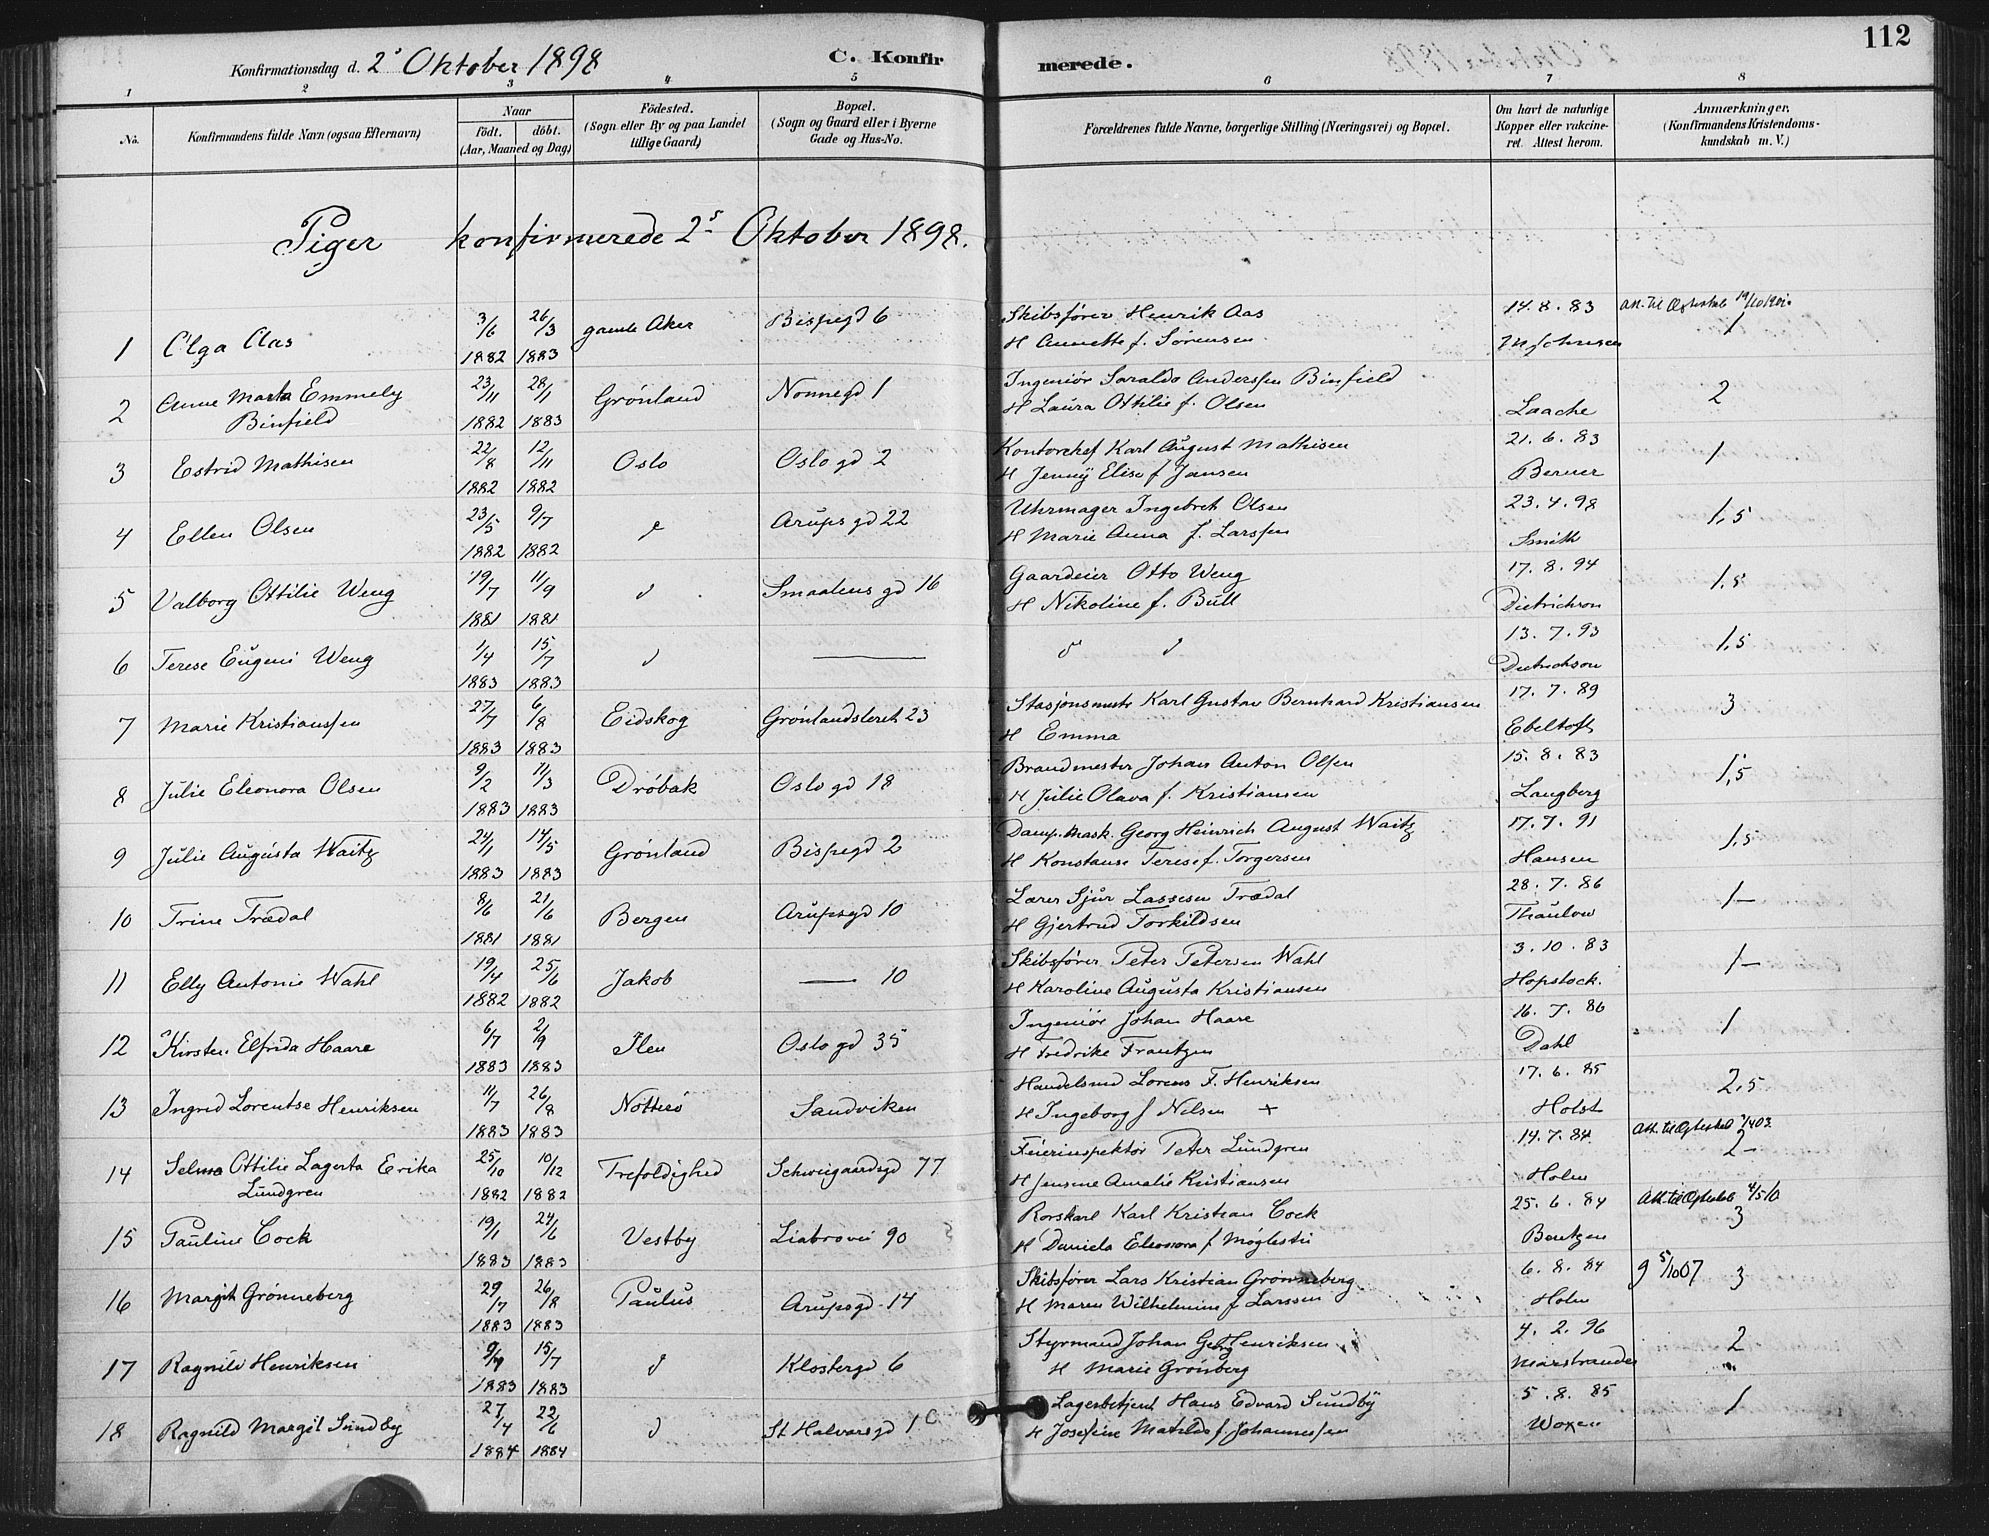 112
Konfirmationsdag d. 2' Oktober 1898
C. Konfirmerede.
1 2 3 4 5 6 7 8
No.
Konfirmandens fulde Navn (ogsaa Efternavn)
Naar
födt. döbt.
(Aar, Maaned og Dag)
Födested.
(Sogn eller By og paa Landet
tillige Gaard)
Bopæl.
(Sogn og Gaard eller i Byerne
Gade og Hus-No.
Forældrenes fulde Navne, borgerlige Stilling (Næringsvei) og Bopæl.
Om havt de naturlige
Kopper eller vakcine-
ret. Attest herom.
Anmærkninger.
(Konfirmandens Kristendoms-
kundskab m. V.)
Piger konfirmerede 2s Oktober 1898.
1 Olga Aas 3/6 1882 26/3 1883 gamle Aker Bispegd 6 Skibsfører Henrik Aas 14.8.83 Att. til Ægteskab 19/10 1901
H Annette f. Sørensen 1
2 Anne Marta Emmely 23/11 1882 28/1 1883 Grönland Nonnegd 1 Ingeniör Haraldo Anderssen Binfield 2
Binfield H Laura Ottilie f. Olsen Laache
3 Estrid Mathisen 22/8 1882 12/11 1882 Oslo Oslo gd 2 Kontorchef Karl August Mathisen 21.6.83 1
H Jenny Elise f Jansen Berner
4 Ellen Olsen 23/5 1882 9/7 1882 Arups gd 22 Uhrmager Ingebret Olsen 23.4.98 1,5
H Marie Anna f. Larssen Smith
5 Valborg Ottilie Weng 19/7 1881 11/9 1881 Smaalens gd 16 Gaardeier Otto Weng 17.8.94 1,5
H Nikoline f. Bull Dietrichson
6 Terese Eugeni Weng 1/4 1883 15/7 1883 — 13.7.93 1,5
Dietrichson
7 Marie Kristianssen 27/7 1883 6/8 1883 Eidskog Grönlandsleret 23 Stasjonsmester Karl Gustav Bernhard Kristiansen 17.7.89 3
H Emma Ebeltoft
8 Julie Eleonora Olsen 9/2 1883 11/3 1883 Dröbak Oslo gd 18 Brandmester Johan Anton Olsen 15.8.83 1,5
H Julie Olava f. Kristiansen Langberg
9 Julie Augusta Waitz 24/1 1883 14/5 1883 Grönland Bispegd 2 Damp.mask. Georg Heinrich August Waitz 17.7.91 1,5
H Konstanse Terese f. Torgersen Hansen
10 Trine Trædal 8/6 1881 21/6 1881 Bergen Arupsgd 10 Lærer Sjur Lassesen Trædal 28.7.86 1—
H Gjertrud Torkildsen Thaulow
11 Elly Antonie Wahl 19/4 1882 25/6 1882 Jakob — 10 Skibsfører Peter Petersen Wahl 3.10.83 1—
H Karoline Augusta Kristiansen Hopstock.
12 Kirsten Elfrida Haare 6/7 1883 2/9 1883 Ilen Oslo gd 35 Ingeniör Johan Haare 16.7.86 1
H Fredrike Frantzen Dahl
13 Ingrid Lorentse Henriksen 11/7 1883 26/8 1883 Nötterö Sandviken Handelsmd Lorens F. Henriksen 17.6.85 2,5
H Ingeborg f Nilsen + Holst
14 Selma Ottilie Lagerta Erika 25/10 1882 10/12 1882 Trefoldighed Schweigaardsgd 77 Feierinspektör Peter Lundgren 14.7.84 Att. til Ægteskab
Lundgren H Jensine Amalie Kristiansen Holm 2—
15 Pauline Cock 19/1 1883 24/6 1883 Vestby Liabrovei 90 Rorskarl Karl Kristian Cock 25.6.84 Att. til Ægteskab 4/5 10
H Daniela Eleonora f Möglesti Bentzen 3
16 Margit Grönneberg 29/7 1883 26/8 1883 Paulus Arupsgd 14 Skibsfører Lars Kristian Grönneberg 6.8.84 g 5/10 07 3
H Maren Wilhelmine f Larssen Holm
17 Ragnild Henriksen 1883 15/7 1883 Klostergd 6 Styrmand Johan Georg Henriksen 4.2.96 2
H Marie Grönberg Marstrander
18 Ragnild Margit Sundby 27/4 1884 22/6 1884 St Halvars gd 1 C Lagerbetjent Hans Edvard Sundby 5.8.85 1
H Josefine Matilde f. Johannessen Woxen